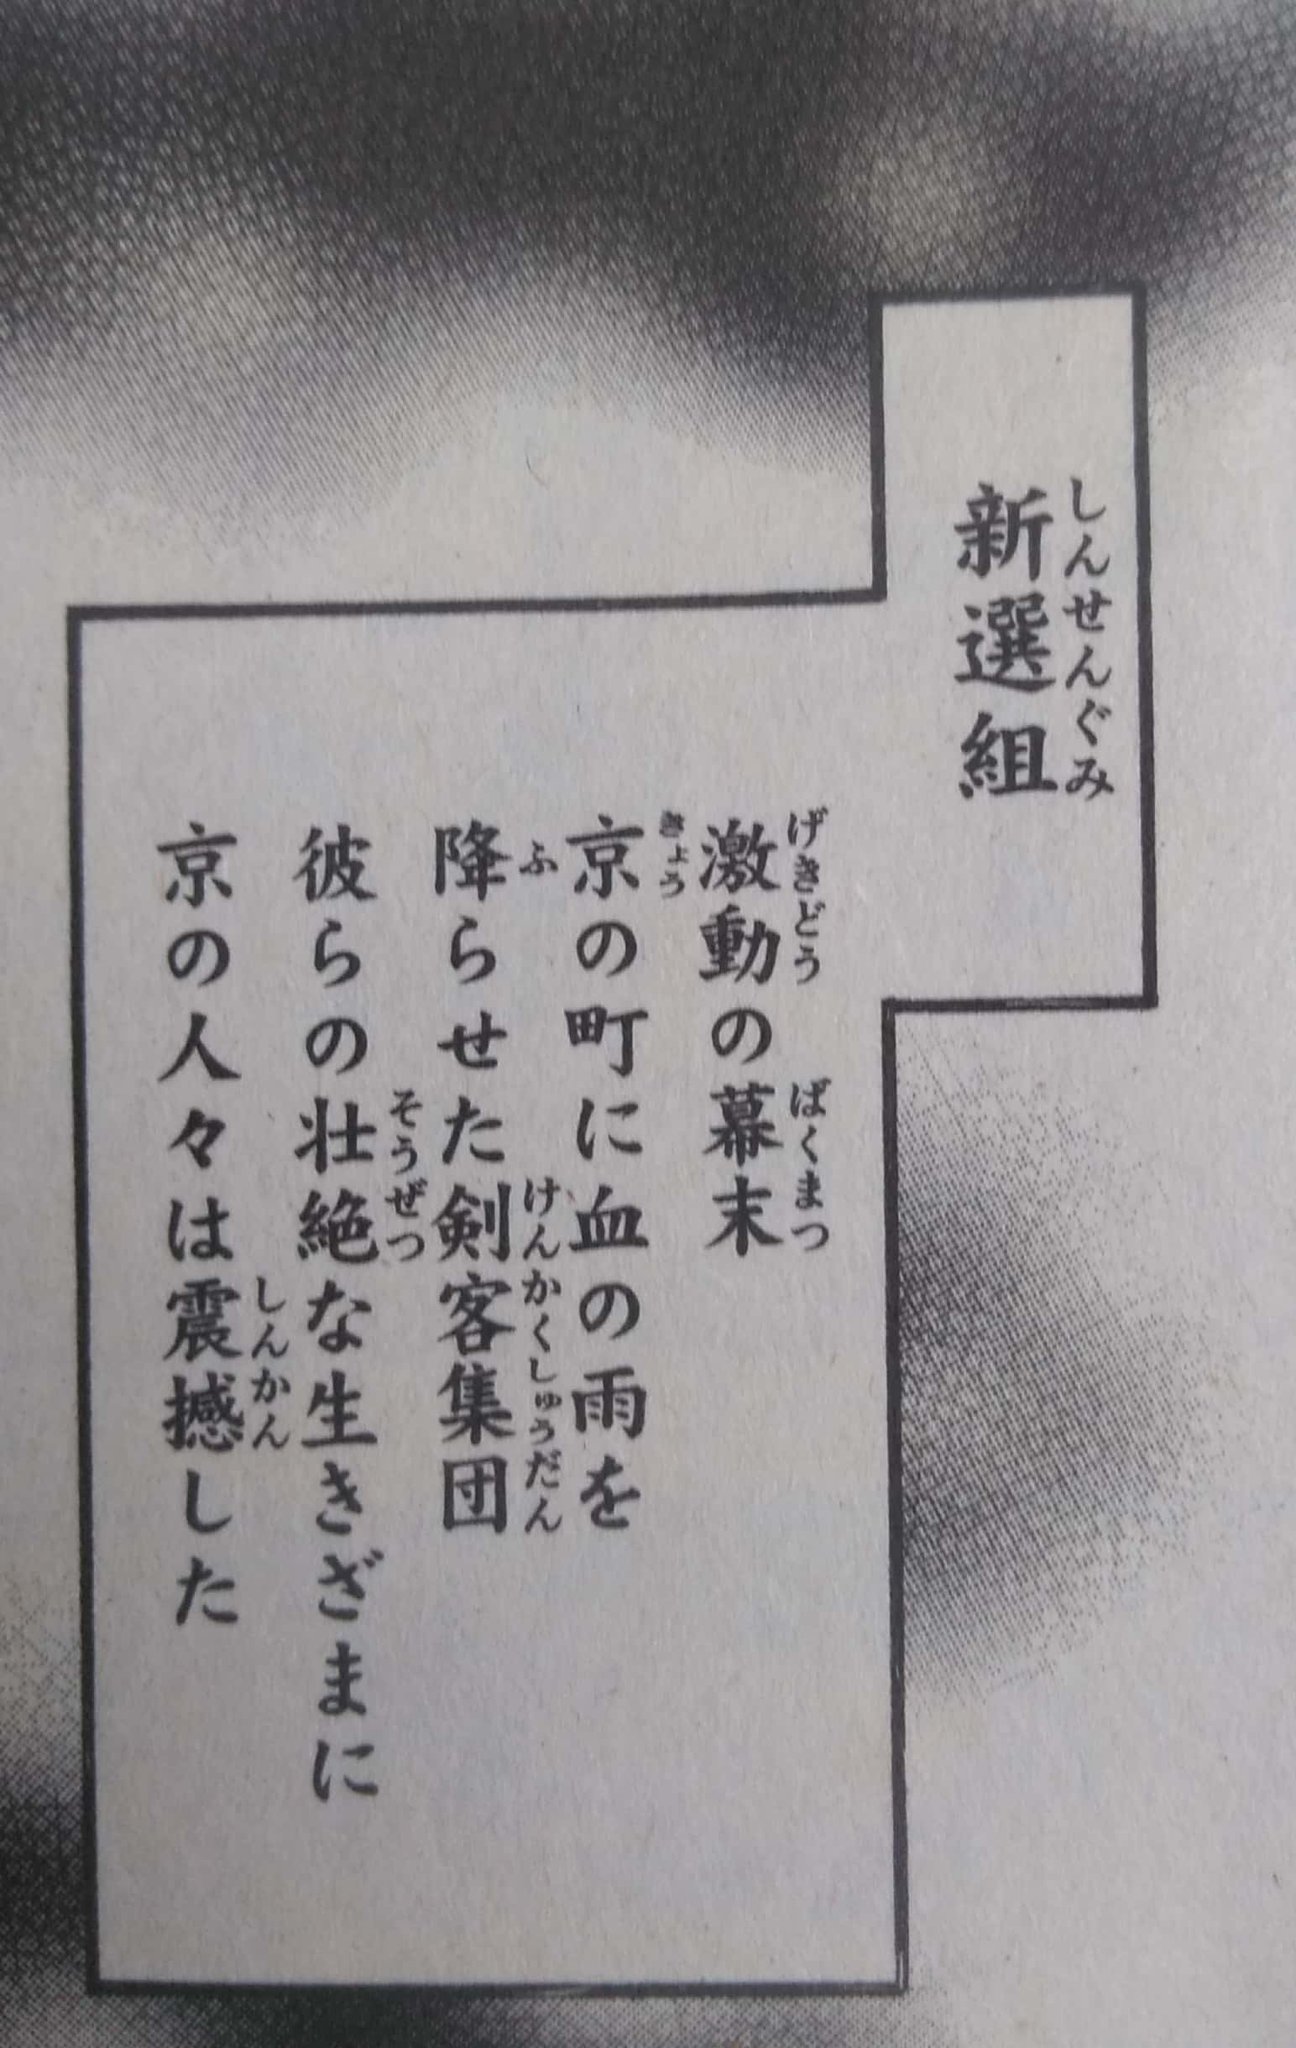 新選組
しんせんぐみ
激動の幕末
げきどう ばくまつ
京の町に血の雨を
きょう
降らせた剣客集団
ふ けんかくしゅうだん
彼らの壮絶な生きざまに
そうぜつ
京の人々は震撼した
しんかん